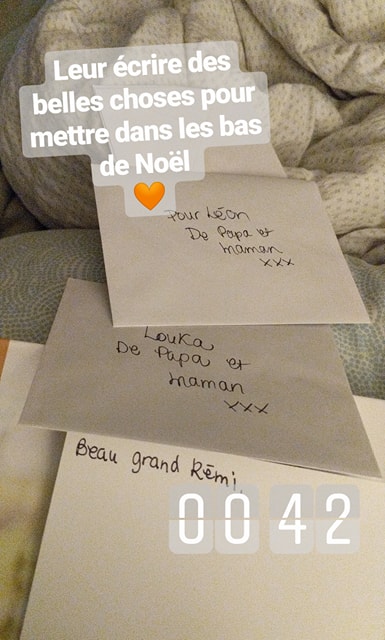 Leur écrire des
belles choses pour
mettre dans les bas
de Noël
Pour Léon
De Papa et
maman
xxx
Louka
De Papa et
maman
xxx
Beau grand Rémi,
00 42